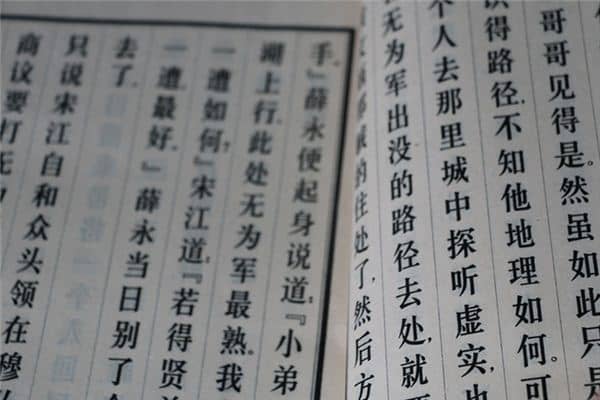 哥哥见得是。然虽如此,只是
识得路径,不知他地理如何。可
个人去那里城中探听虚实,也
无为军出没的路径去处,就要
贼的住处了,然后方
手。』薛永便起身说道:『小弟
湖上行,此处无为军最熟。我
一遭如何?』宋江道:『若得贤
一遭最好。』薛永当日别了
去了。
只说宋江自和众头领在穆
商议要打无